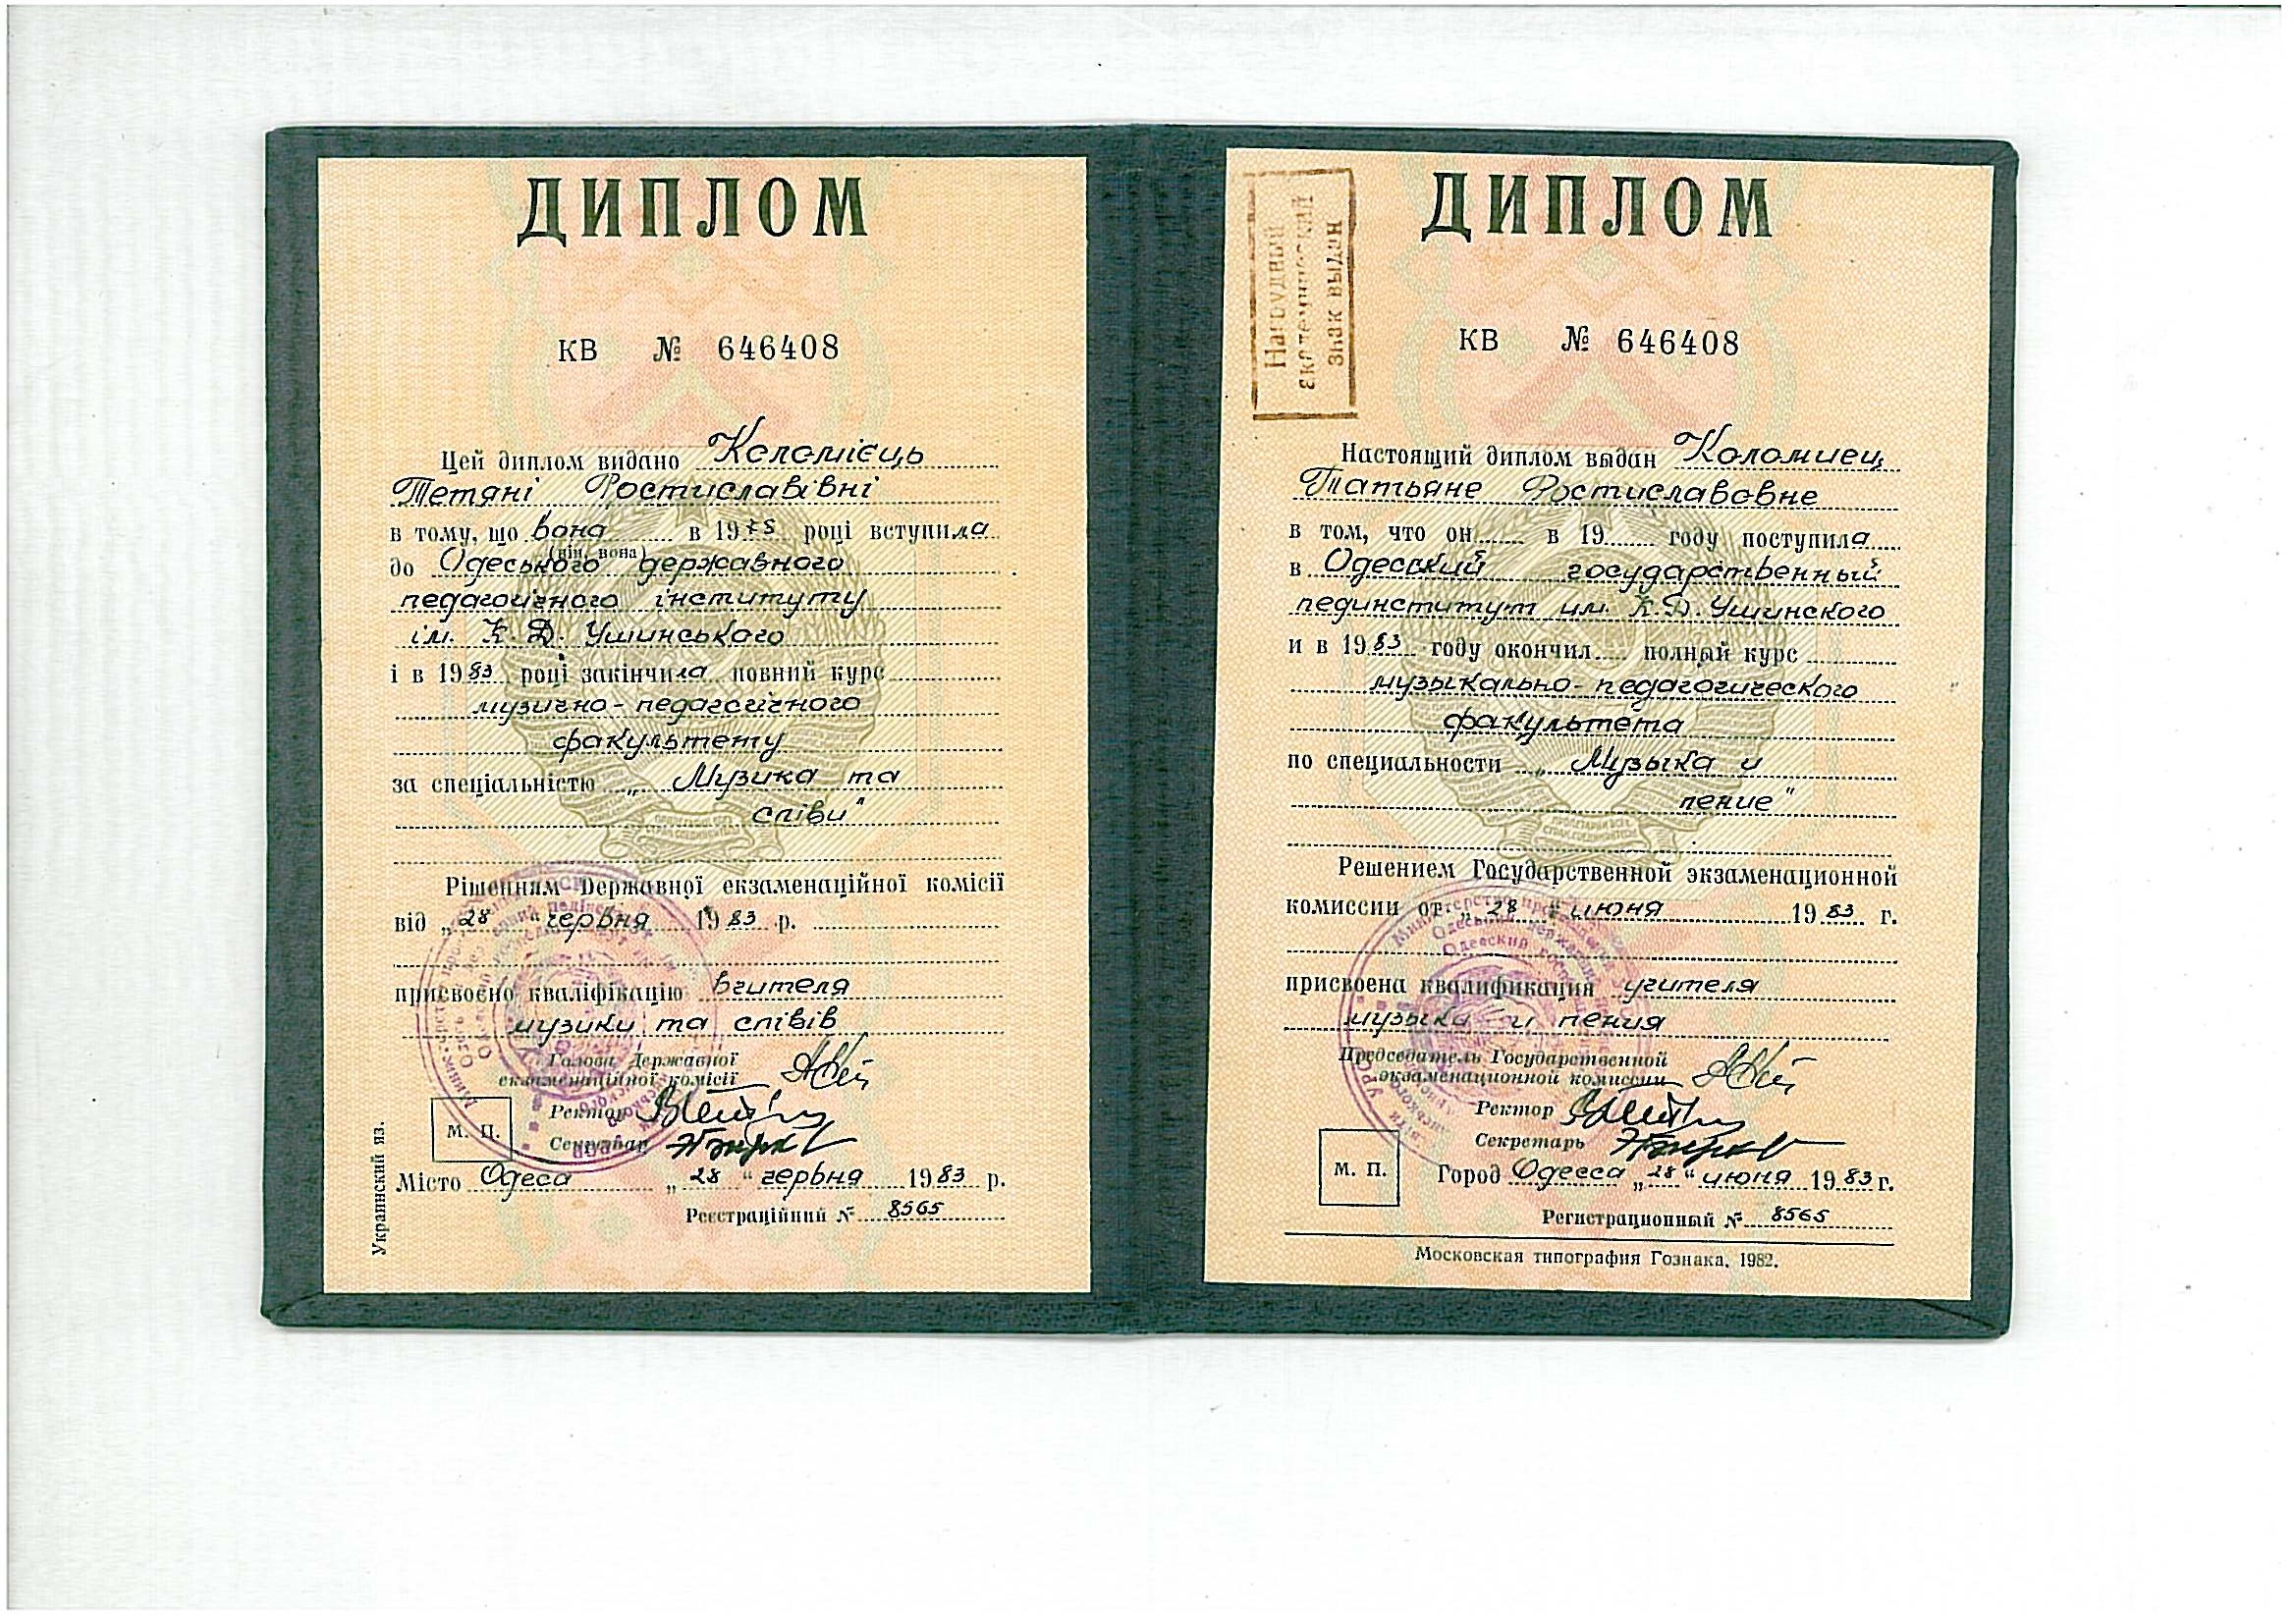 ДИПЛОМ
КВ № 646408
Цей диплом видано Коломієць
Тетяні Ростиславівні
в тому, що вона в 1978 році вступила
(він, вона)
до Одеського державного
педагогічного інституту
ім. К.Д. Ушинського
і в 1983 році закінчила повний курс
музично-педагогічного
факультету
за спеціальністю „Музика та
співи"
Рішенням Державної екзаменаційної комісії
від „28" червня 1983 р.
присвоєно кваліфікацію вчителя
музики та співів
Голова Державної
екзаменаційної комісії
Ректор
Секретар
М. П.
Місто Одеса „28" червня 1983 р.
Реєстраційний № 8565
Украинский яз.
Нагрудный
академический
знак выдан
ДИПЛОМ
КВ № 646408
Настоящий диплом выдан Коломиец
Татьяне Ростиславовне
в том, что он в 19 году поступила
в Одесский государственный
пединститут им. К.Д. Ушинского
и в 1983 году окончил полный курс
музыкально-педагогического
факультета
по специальности „Музыка и
пение"
Решением Государственной экзаменационной
комиссии от „28" июня 1983 г.
присвоена квалификация учителя
музыки и пения
Председатель Государственной
экзаменационной комиссии
Ректор
Секретарь
М. П.
Город Одесса „28" июня 1983 г.
Регистрационный № 8565
Московская типография Гознака. 1982.